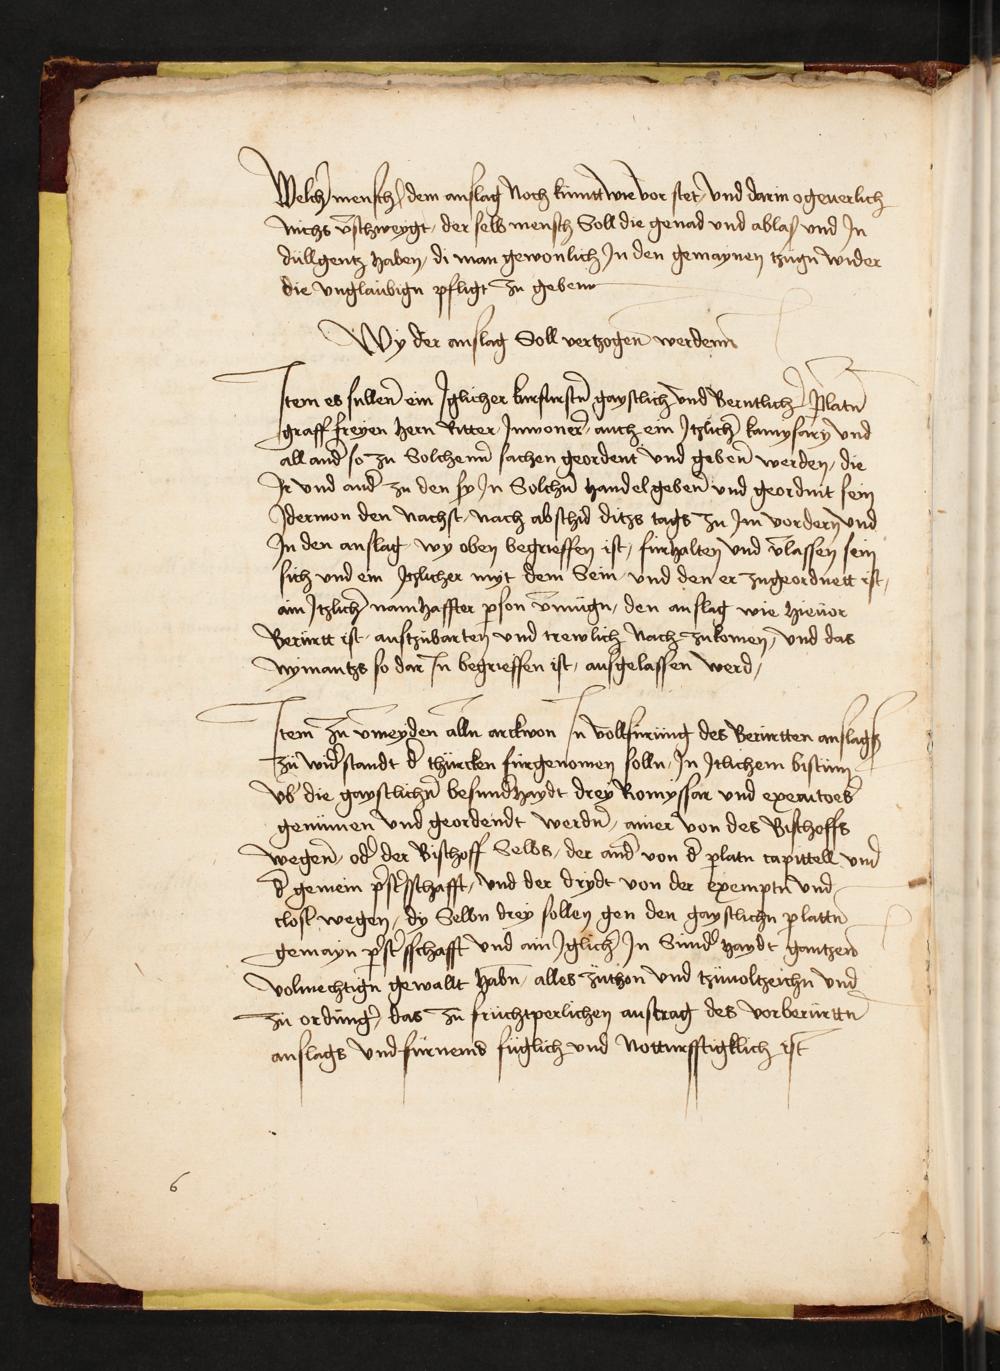 Welch mensch dem anslag Noch kumtt wie vor stet und darin ogeuerlich
nichs vschweygt der selb mensch Soll die genad und ablas und In
düllgentz haben di man gewonlich In den gemaynen tzügn wider
die unglaubign pfligt zu geben
Wy der anslag Soll vertzogen werdenn
Item es sullen ein Iglicher kurfurstn gaystlich und Werntlich Platn
graff freyen hern Ritter Inwoner auch ein Itzlich kamysary und
all and so zu Solchenn sachen geordent und geben werden die
Ir und and zu den sy In Solchn handel geben und geordnit sein
Idermon den Nachst nach abschid ditzs tags zu Im vordern und
In den anslag wy oben begrieffen ist fürhalten und vlassen sein
sich und ein Itzlicher myt dem Sein und den er zugeordnett ist
ain Itzlich namhaffter pson vmügn den anslag wie hieuor
Berürtt ist auszubarten und trewlich Nach zukomen und das
nymantzs so dar In begrieffen ist ausgelassen werd
Item zu vmeyden alln arckwon In vollfürüng des Berürtten anslags
zü widstandt d thürcken fürgenomen solln In Itlichem bistum
üb die gaystlichn besundhaydt drey Komyssar und exerutoes
genumen und geordendt werdn ainer von des Bischoffs
wegen od der Bischoff Selbs der and von d platn capittell und
d gemein pstschafft und der drydt von der exemptn und
clost wegen dy Selbn drey sollen gen den gaystlichn plattn
gemayn pstschafft und ain Iglich In Sundhaydt gantzen
volmechtign gewallt habn alles züthon und tzüuoltzeichn und
zü ordüng das zü früchtperlichen austrag des vorberürttn
anslags und fürnems füglich und Notturfftigklich ist
6